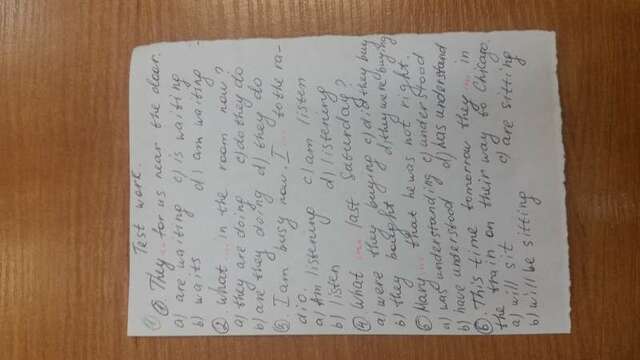 Test work.
① They ... for us near the door.
a) are waiting c) is waiting
b) waits d) am waiting
② What ... in the room now?
a) they are doing c) do they do
b) are they doing d) they do
③ I am busy now. I ... to the ra-
dio.
a) Am listening c) am listen
b) listen d) listening
④ What ... last Saturday?
a) were they buying c) did they buy
b) they bought d) they were buying
⑤ Mary ... that he was not right.
a) was understanding c) understood
b) have understood d) has understand
⑥ This time tomorrow they ... in
the train on their way to Chicago.
a) will sit c) are sitting
b) will be sitting